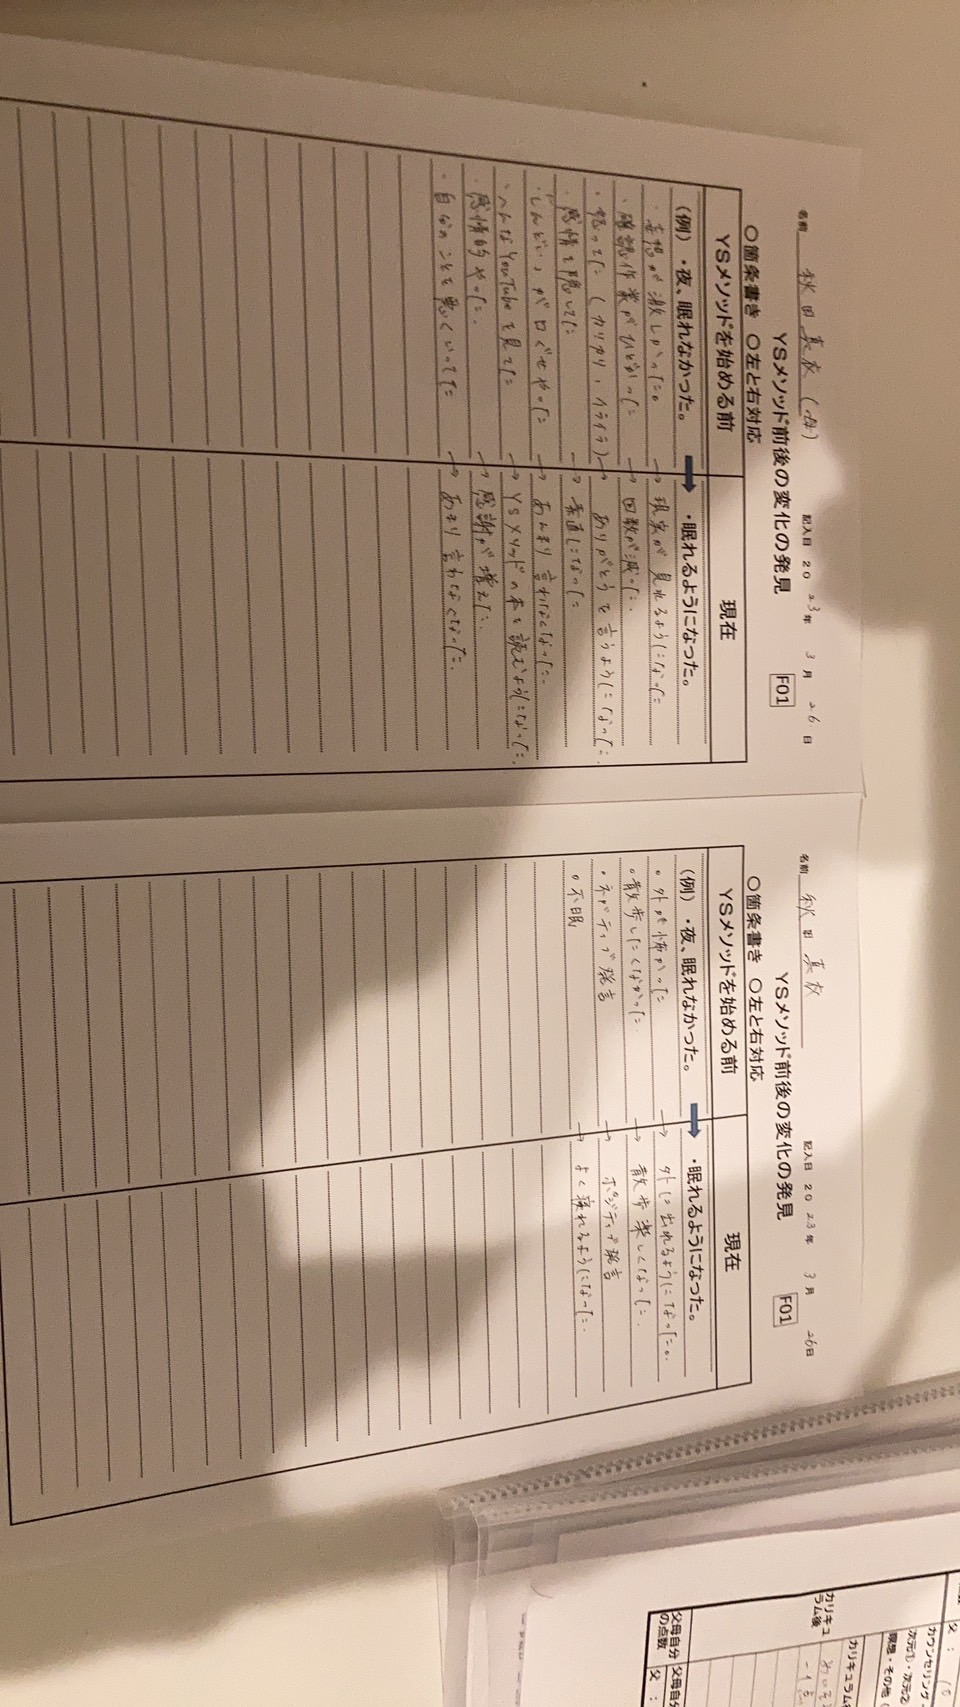 名前 秋田真衣(母) 記入日 2023年 3月 26日
YSメソッド前後の変化の発見 F01
〇箇条書き 〇左と右対応
YSメソッドを始める前 現在
(例)・夜、眠れなかった。 ・眠れるようになった。
・妄想が激しかった。 → 現実が見れるようになった
・確認作業がひどかった → 回数が減った。
・怒ってた(カリカリ、イライラ) → ありがとうを言うようになった。
・感情を隠してた → 素直になった
・「しんどい」が口ぐせやった → あんまり言わなくなった。
・へんなYouTubeを見てた → YSメソッドの本を読むようになった。
・感情的やった。 → 感謝が増えた。
・自分のことを悪くいってた → あまり言わなくなった。
名前 秋田真衣 記入日 2023年 3月 26日
YSメソッド前後の変化の発見 F01
〇箇条書き 〇左と右対応
YSメソッドを始める前 現在
(例)・夜、眠れなかった。 ・眠れるようになった。
。外が怖かった → 外に出れるようになった。
。散歩したくなかった。 → 散歩楽しくなった。
・ネガティブ発言 → ポジティブ発言
。不眠 → よく寝れるようになった。
父: 10
カウンセリング
次元①・次元②
瞑想・その他(
カリキュラム
カリキュラム後
-1点
父母自分の点数 父母自分
父: